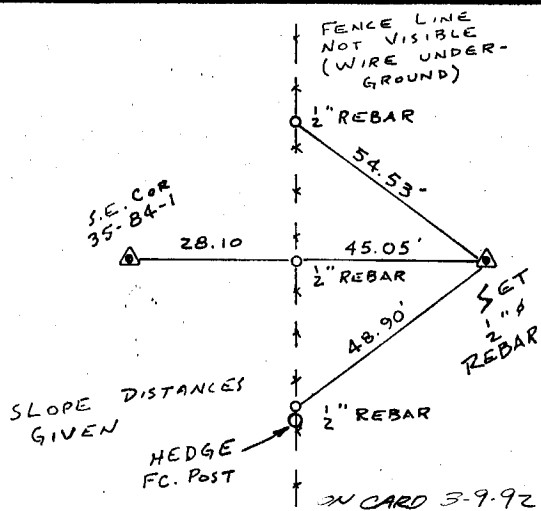 FENCE LINE
NOT VISIBLE
(WIRE UNDER-
GROUND)
1/2" REBAR
54.53-
S.E. COR
35-84-1
28.10
45.05'
1/2" REBAR
SET
1/2" ø
REBAR
48.90'
SLOPE DISTANCES
GIVEN
1/2" REBAR
HEDGE
FC. POST
ON CARD 3-9-92